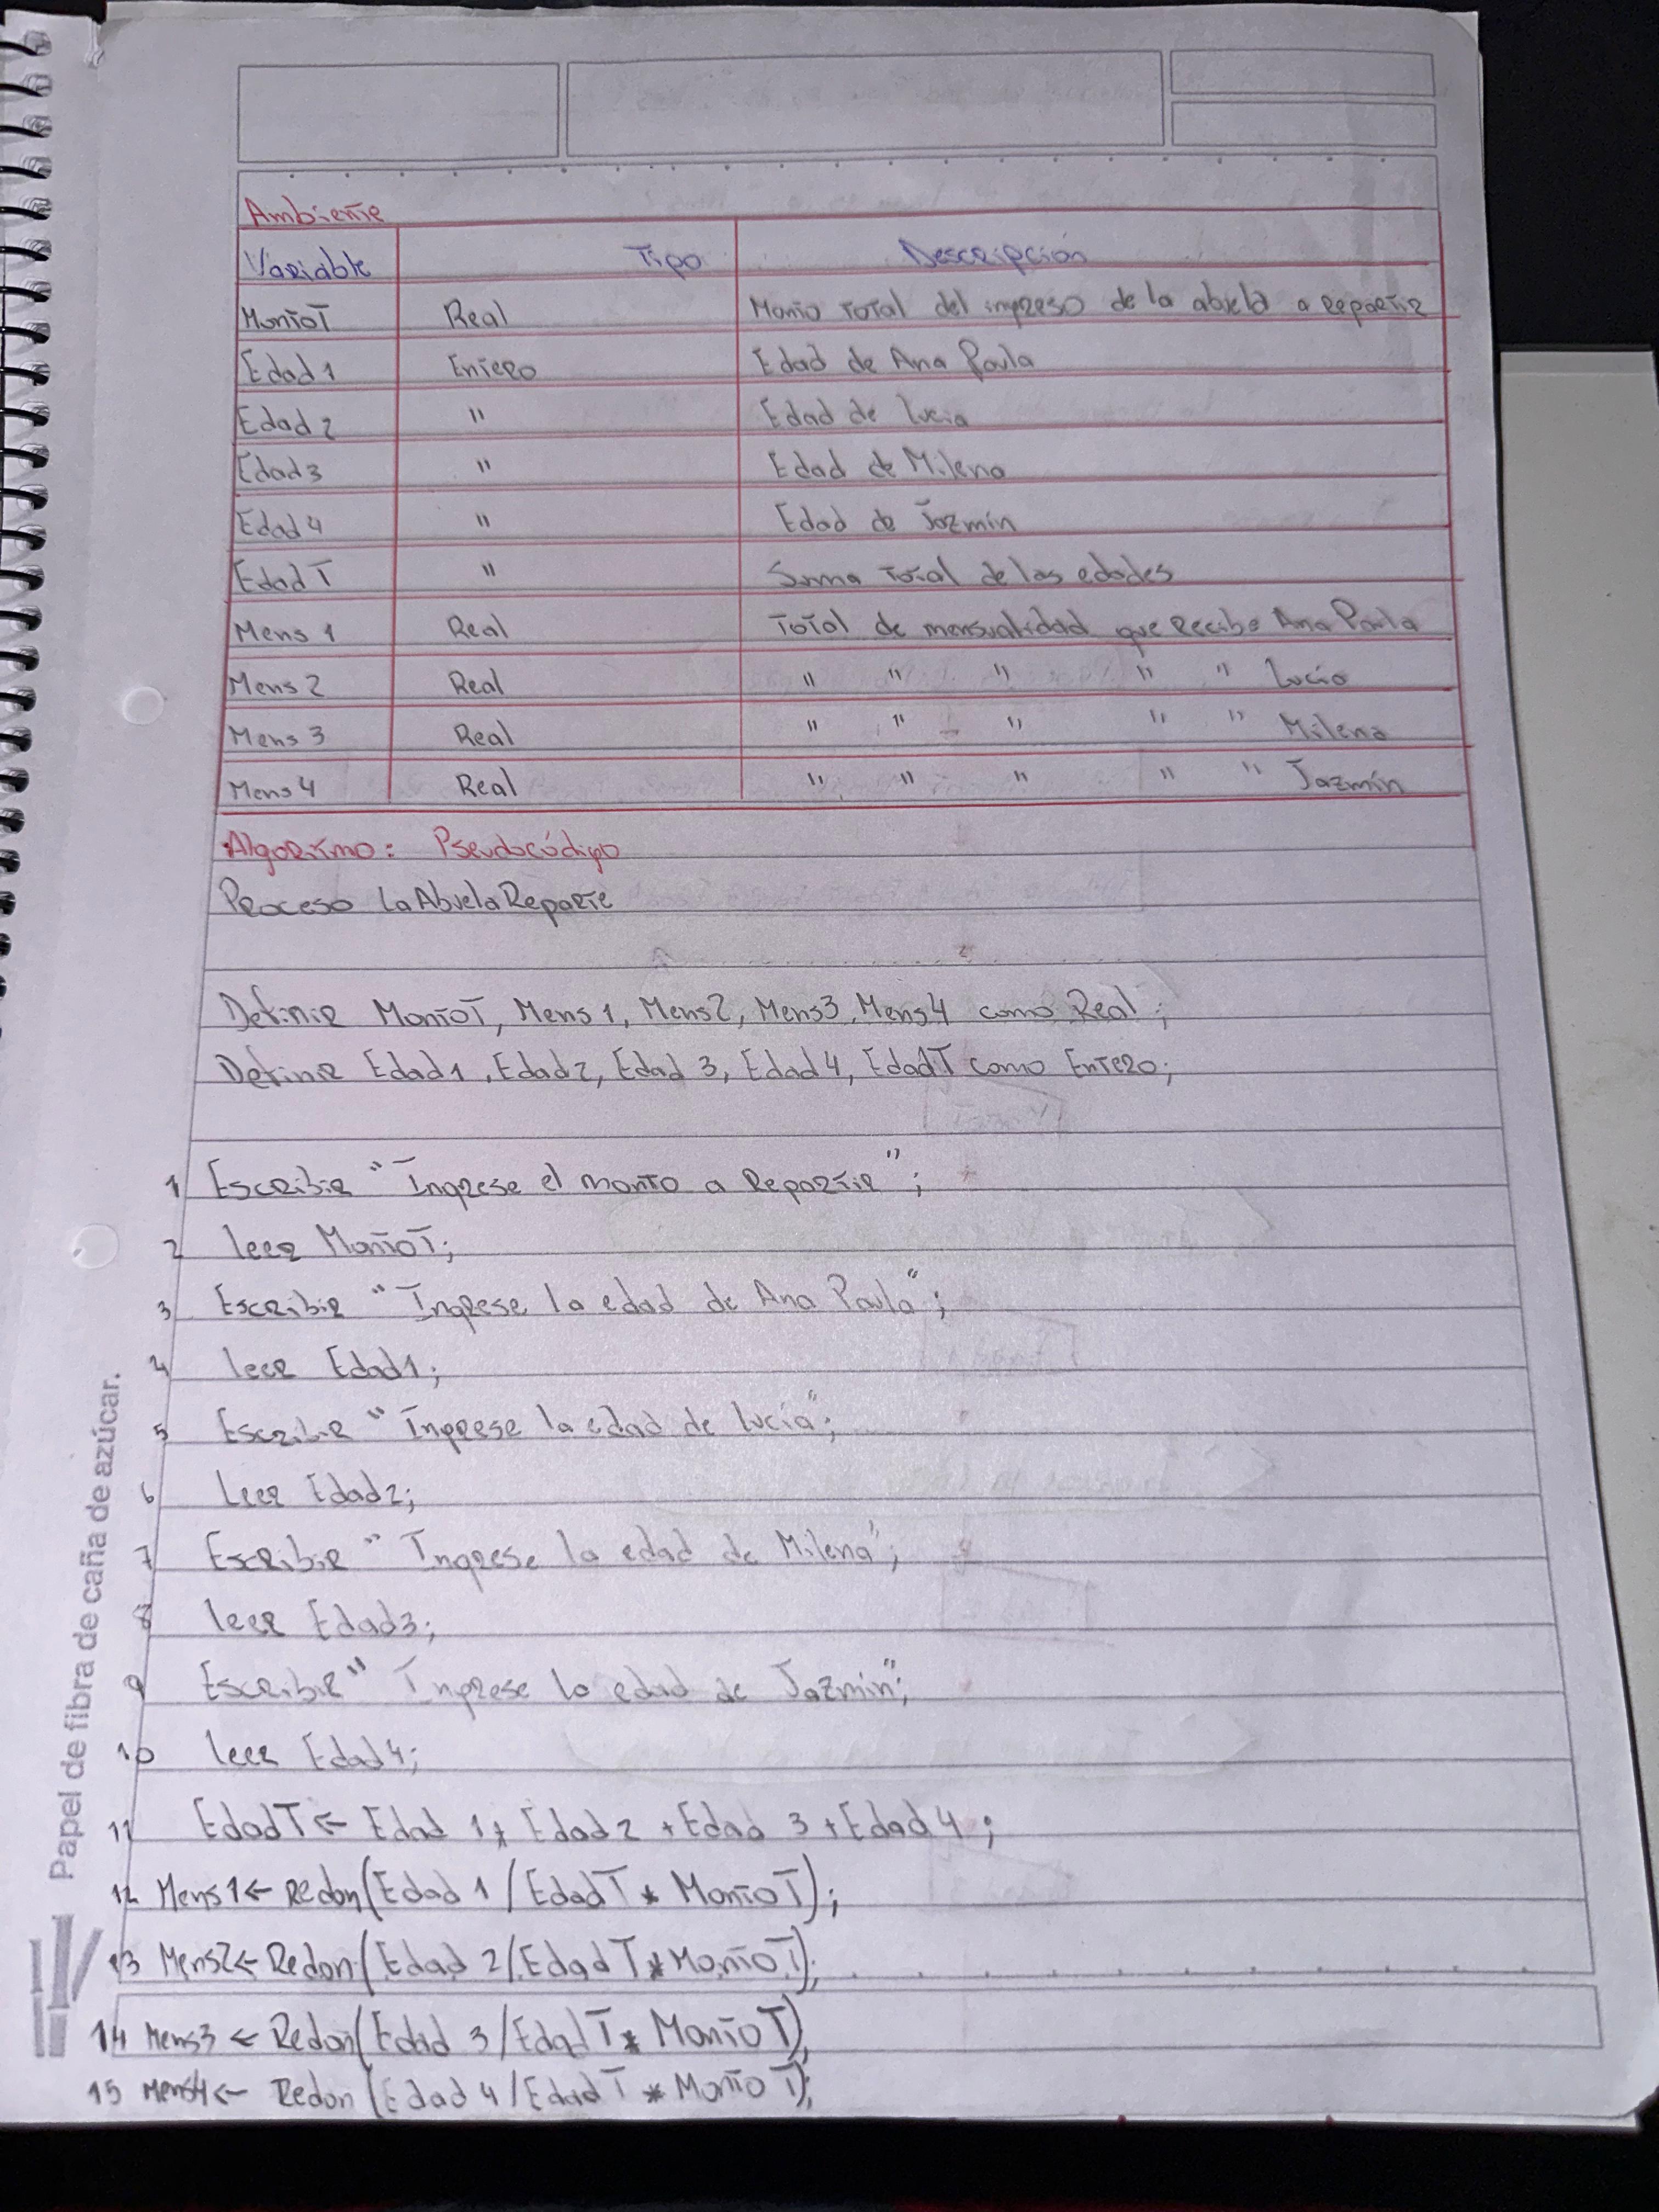 Ambiente
Variable Tipo Descripción
MontoT Real Monto total del ingreso de la abuela a repartir
Edad1 Entero Edad de Ana Paula
Edad2 " Edad de Lucia
Edad3 " Edad de Milena
Edad4 " Edad de Jazmín
EdadT " Suma total de las edades
Mens1 Real Total de mensualidad que recibe Ana Paula
Mens2 Real " " " " " Lucía
Mens3 Real " " " " " Milena
Mens4 Real " " " " " Jazmín
Algoritmo: Pseudocódigo
Proceso LaAbuelaReparte
Definir MontoT, Mens1, Mens2, Mens3, Mens4 como Real;
Definir Edad1, Edad2, Edad 3, Edad4, EdadT como Entero;
1 Escribir "Ingrese el monto a Repartir";
2 leer MontoT;
3 Escribir "Ingrese la edad de Ana Paula";
4 leer Edad1;
5 Escribir "Ingrese la edad de lucía";
6 Leer Edad2;
7 Escribir "Ingrese la edad de Milena";
8 leer Edad3;
9 Escribir "Ingrese la edad de Jazmin";
10 leer Edad4;
11 EdadT ← Edad 1+ Edad2 +Edad 3 +Edad4;
12 Mens1← Redon(Edad 1/EdadT * MontoT);
13 Mens2← Redon(Edad 2/EdadT*MontoT);
14 Mens3 ← Redon(Edad 3/EdadT* MontoT);
15 Mens4← Redon(Edad 4/EdadT * MontoT);
Papel de fibra de caña de azúcar.